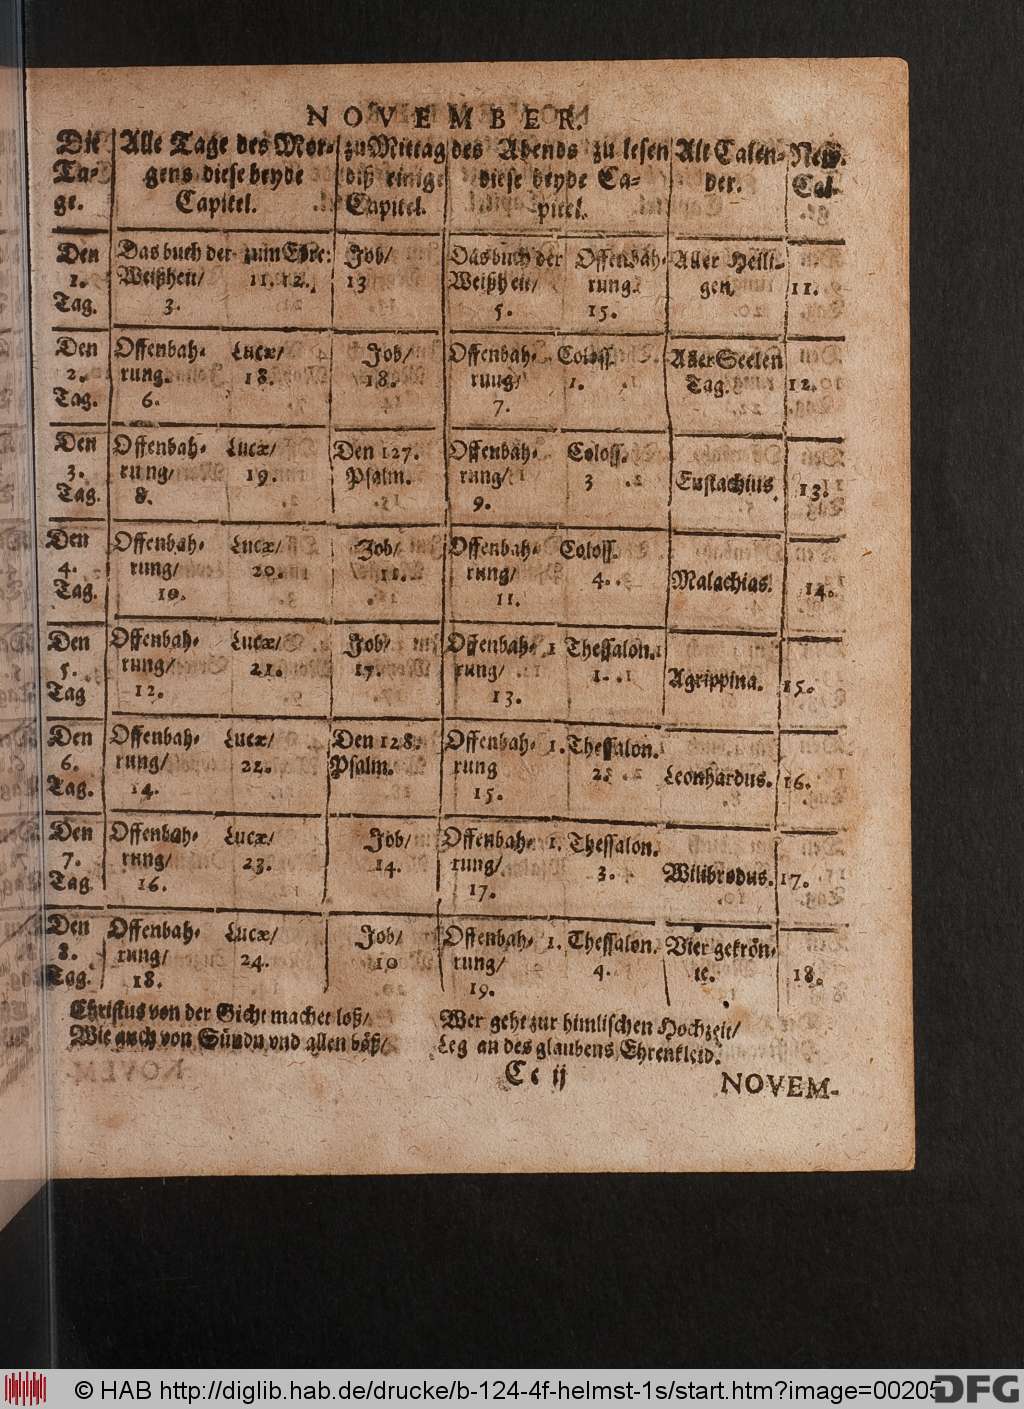 NOVEMBER.
Die Alle Tage des Mor- zu Mittag des Abends zu lesen Alt Calen- New.
Ta- gens diese beyde diß einige diese beyde Ca- der. Cal-
ge. Capitel. Capitel. pitel.
Den Das buch der zum Ebre: Job/ Das buch der Offenbah- Aller Heili-
1. Weißheit/ 11. 12. 13 Weißheit/ rung. gen 11.
Tag. 3. 5. 15.
Den Offenbah- Lucæ/ Job/ Offenbah- Coloss. Aller Seelen
2. rung. 18. 18. rung/ 1. Tag. 12.
Tag. 6. 7.
Den Offenbah- Lucæ/ Den 127. Offenbah- Coloss.
3. rung/ 19. Psalm. rung/ 3 Eustachius 13.
Tag. 8. 9.
Den Offenbah- Lucæ/ Job/ Offenbah- Coloss.
4. rung/ 20. 11. rung/ 4. Malachias. 14.
Tag. 10. 11.
Den Offenbah- Lucæ/ Job/ Offenbah- 1 Thessalon.
5. rung/ 21. 17. rung/ 1. Agrippina. 15.
Tag 12. 13.
Den Offenbah- Lucæ/ Den 128. Offenbah- 1. Thessalon.
6. rung/ 22. Psalm. rung 2 Leonhardus. 16.
Tag. 14. 15.
Den Offenbah- Lucæ/ Job/ Offenbah- 1. Thessalon.
7. rung/ 23. 14. rung/ 3. Wilibrodus. 17.
Tag 16. 17.
Den Offenbah- Lucæ/ Job/ Offenbah- 1. Thessalon. Vier gekrön-
8. rung/ 24. 10 rung/ 4. te. 18.
Tag. 18. 19.
Christus von der Gicht machet loß/ Wer geht zur himlischen Hochzeit/
Wie auch von Sündn vnd allen böß/ Leg an des glaubens Ehrenkleid.
Cc ij NOVEM-
© HAB http://diglib.hab.de/drucke/b-124-4f-helmst-1s/start.htm?image=00205
DFG